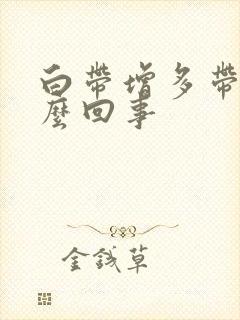 白带增多带
麼回事
金钱草